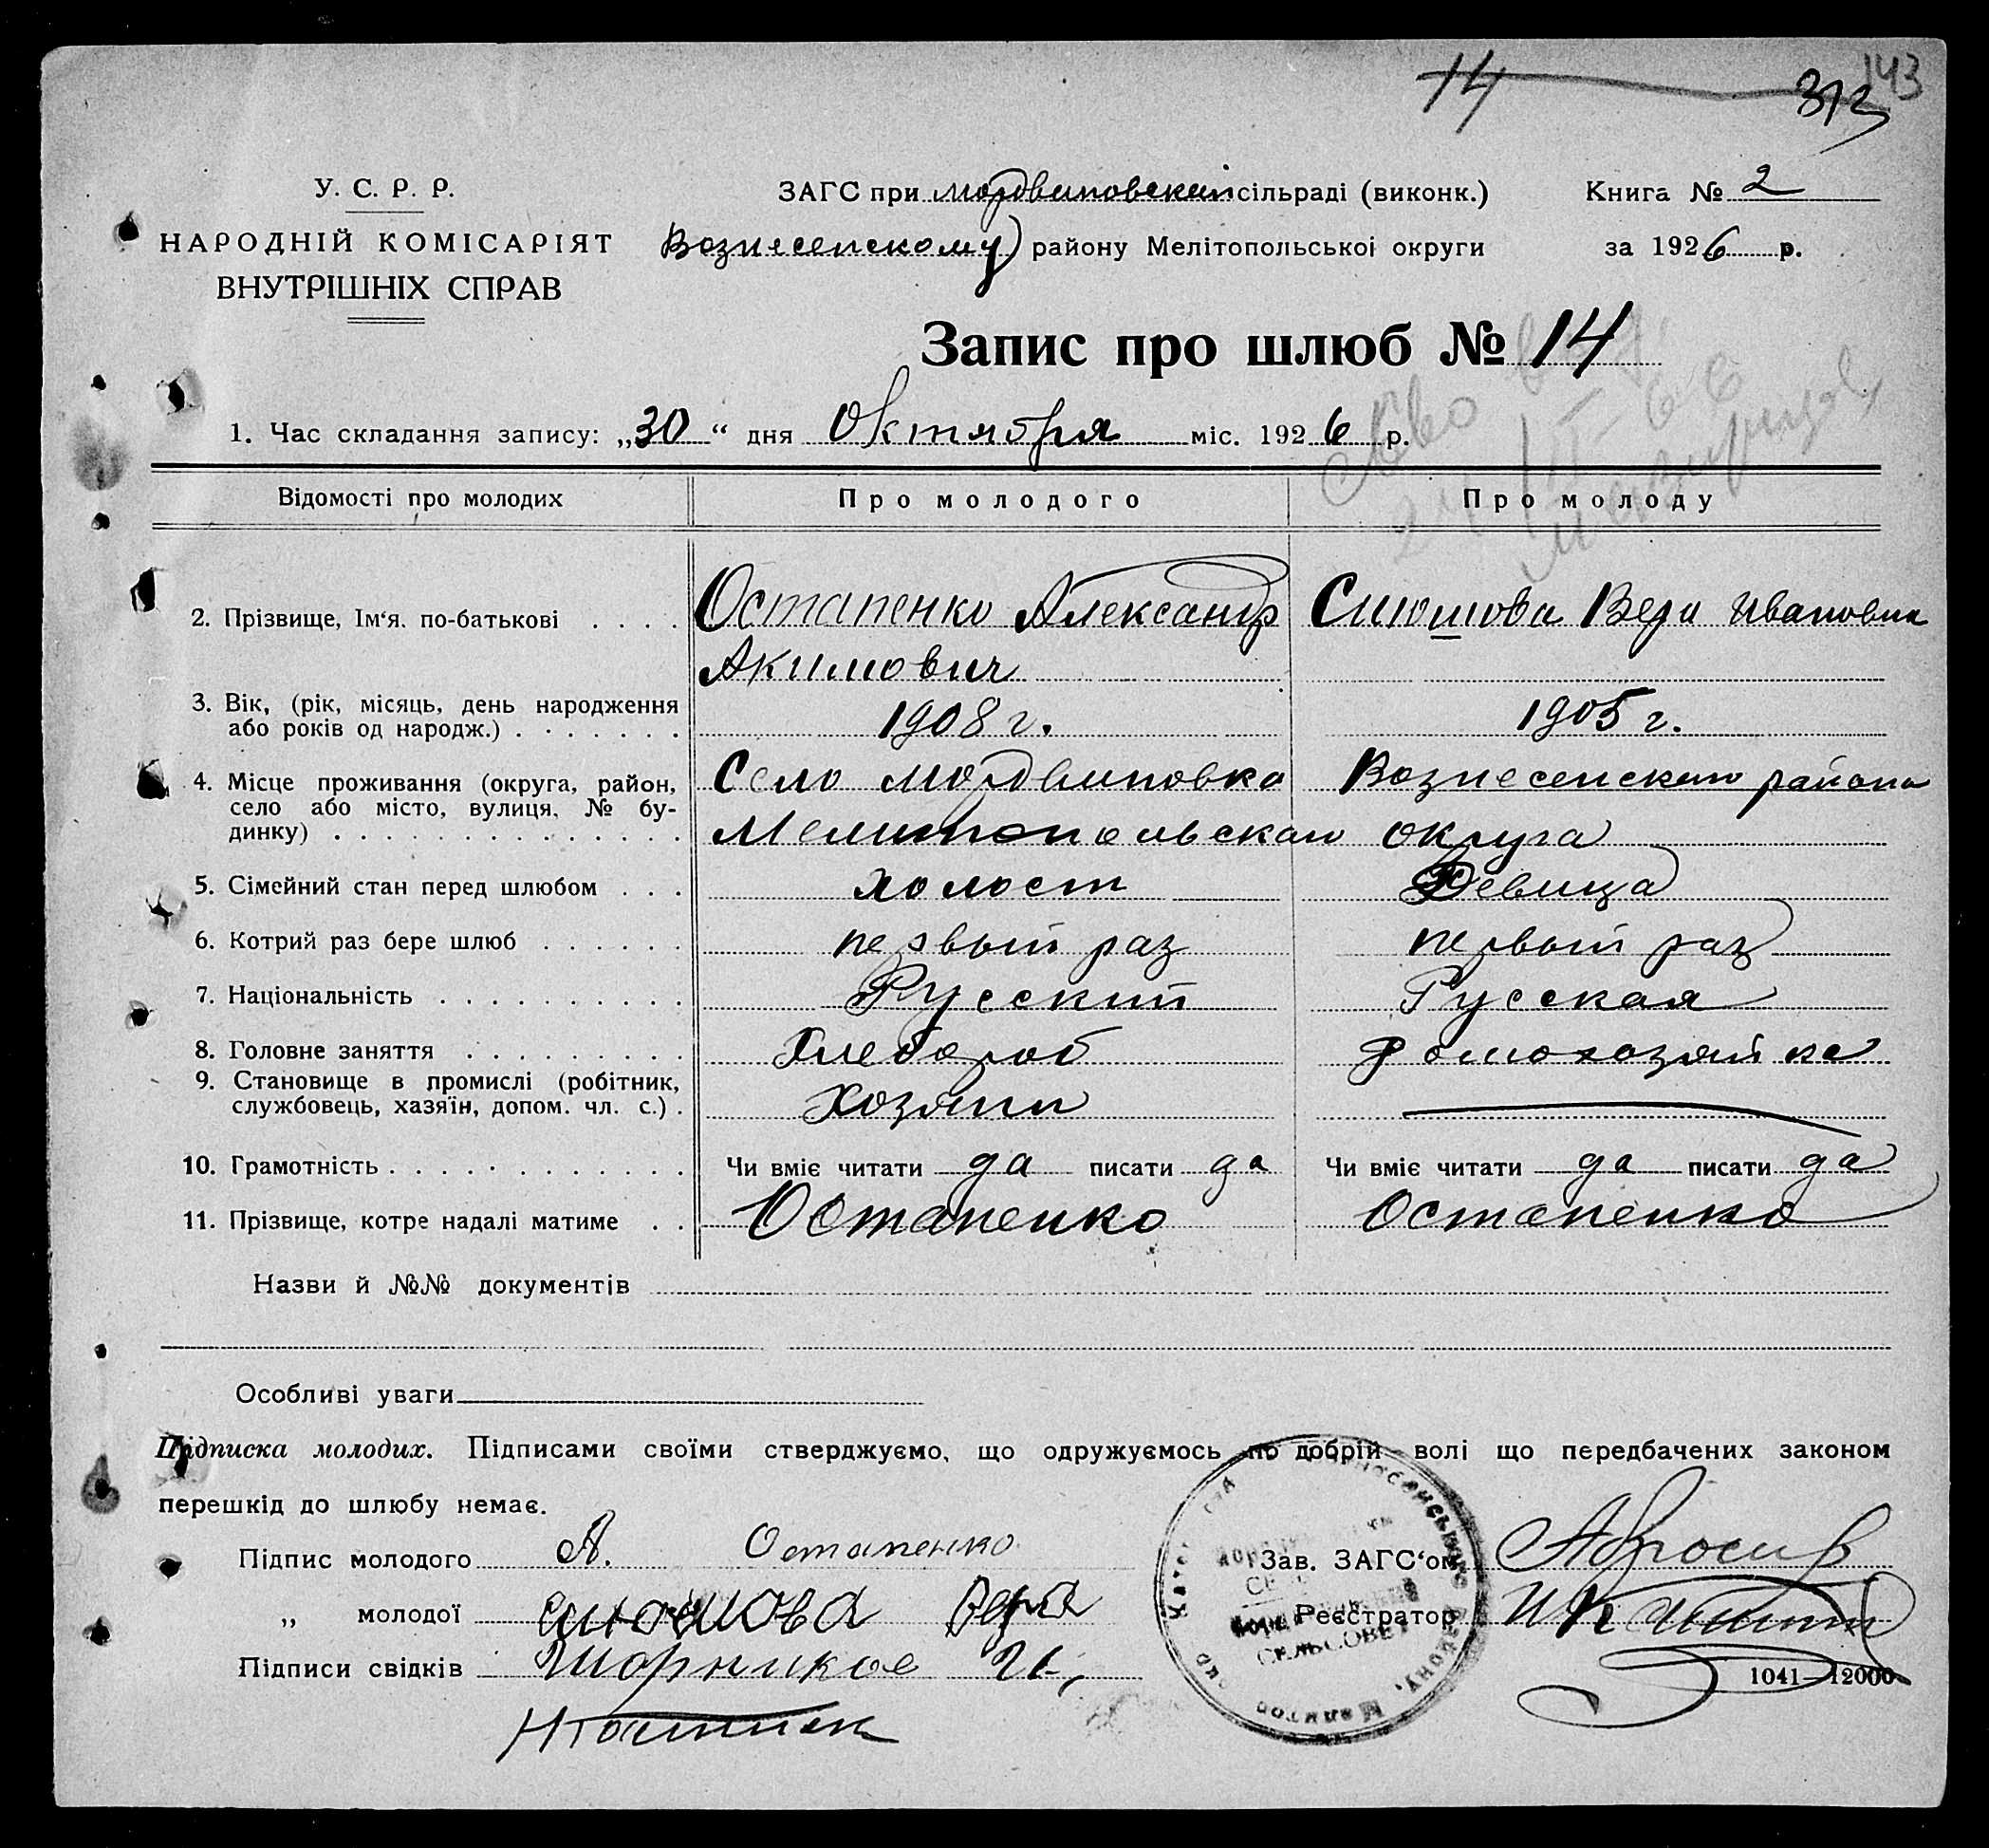 14 313 143
У. С. Р. Р.
НАРОДНІЙ КОМІСАРІЯТ
ВНУТРІШНІХ СПРАВ
ЗАГС при Мордвиновский сільраді (виконк.) Книга № 2
Вознесенскому району Мелітопольської округи за 1926 р.
Запис про шлюб № 14
1. Час складання запису: „30“ дня Октября міс. 1926 р.
Відомості про молодих Про молодого Про молоду
2. Прізвище, Ім‘я. по-батькові . . . . Остапенко Александр Сиюшова Вера Ивановна
Акимович
3. Вік, (рік, місяць, день народження
або років од народж.) . . . . . . . 1908 г. 1905 г.
4. Місце проживання (округа, район, Село Мордвиновка Вознесенского района
село або місто, вулиця, № бу-
динку) . . . . . . . . . . . . . . . Мелитопольскаго округа
5. Сімейний стан перед шлюбом . . . холост Девица
6. Котрий раз бере шлюб . . . . . . первый раз первый раз
7. Національність . . . . . . . . . . Русский Русская
8. Головне заняття . . . . . . . . . Хлебороб домохозяйка
9. Становище в промислі (робітник,
службовець, хазяїн, допом. чл. с.) . Хозяин
10. Грамотність . . . . . . . . . . . . . Чи вміє читати да писати да Чи вміє читати да писати да
11. Прізвище, котре надалі матиме . . Остапенко Остапенко
Назви й №№ документів
Особливі уваги
Підписка молодих. Підписами своїми стверджуємо, що одружуємось по добрій волі що передбачених законом
перешкід до шлюбу немає.
Підпис молодого А. Остапенко Зав. ЗАГС‘ом
„ молодої Сиюшова Вера Реєстратор
Підписи свідків
1041—12000
СЕЛЬСОВЕТ